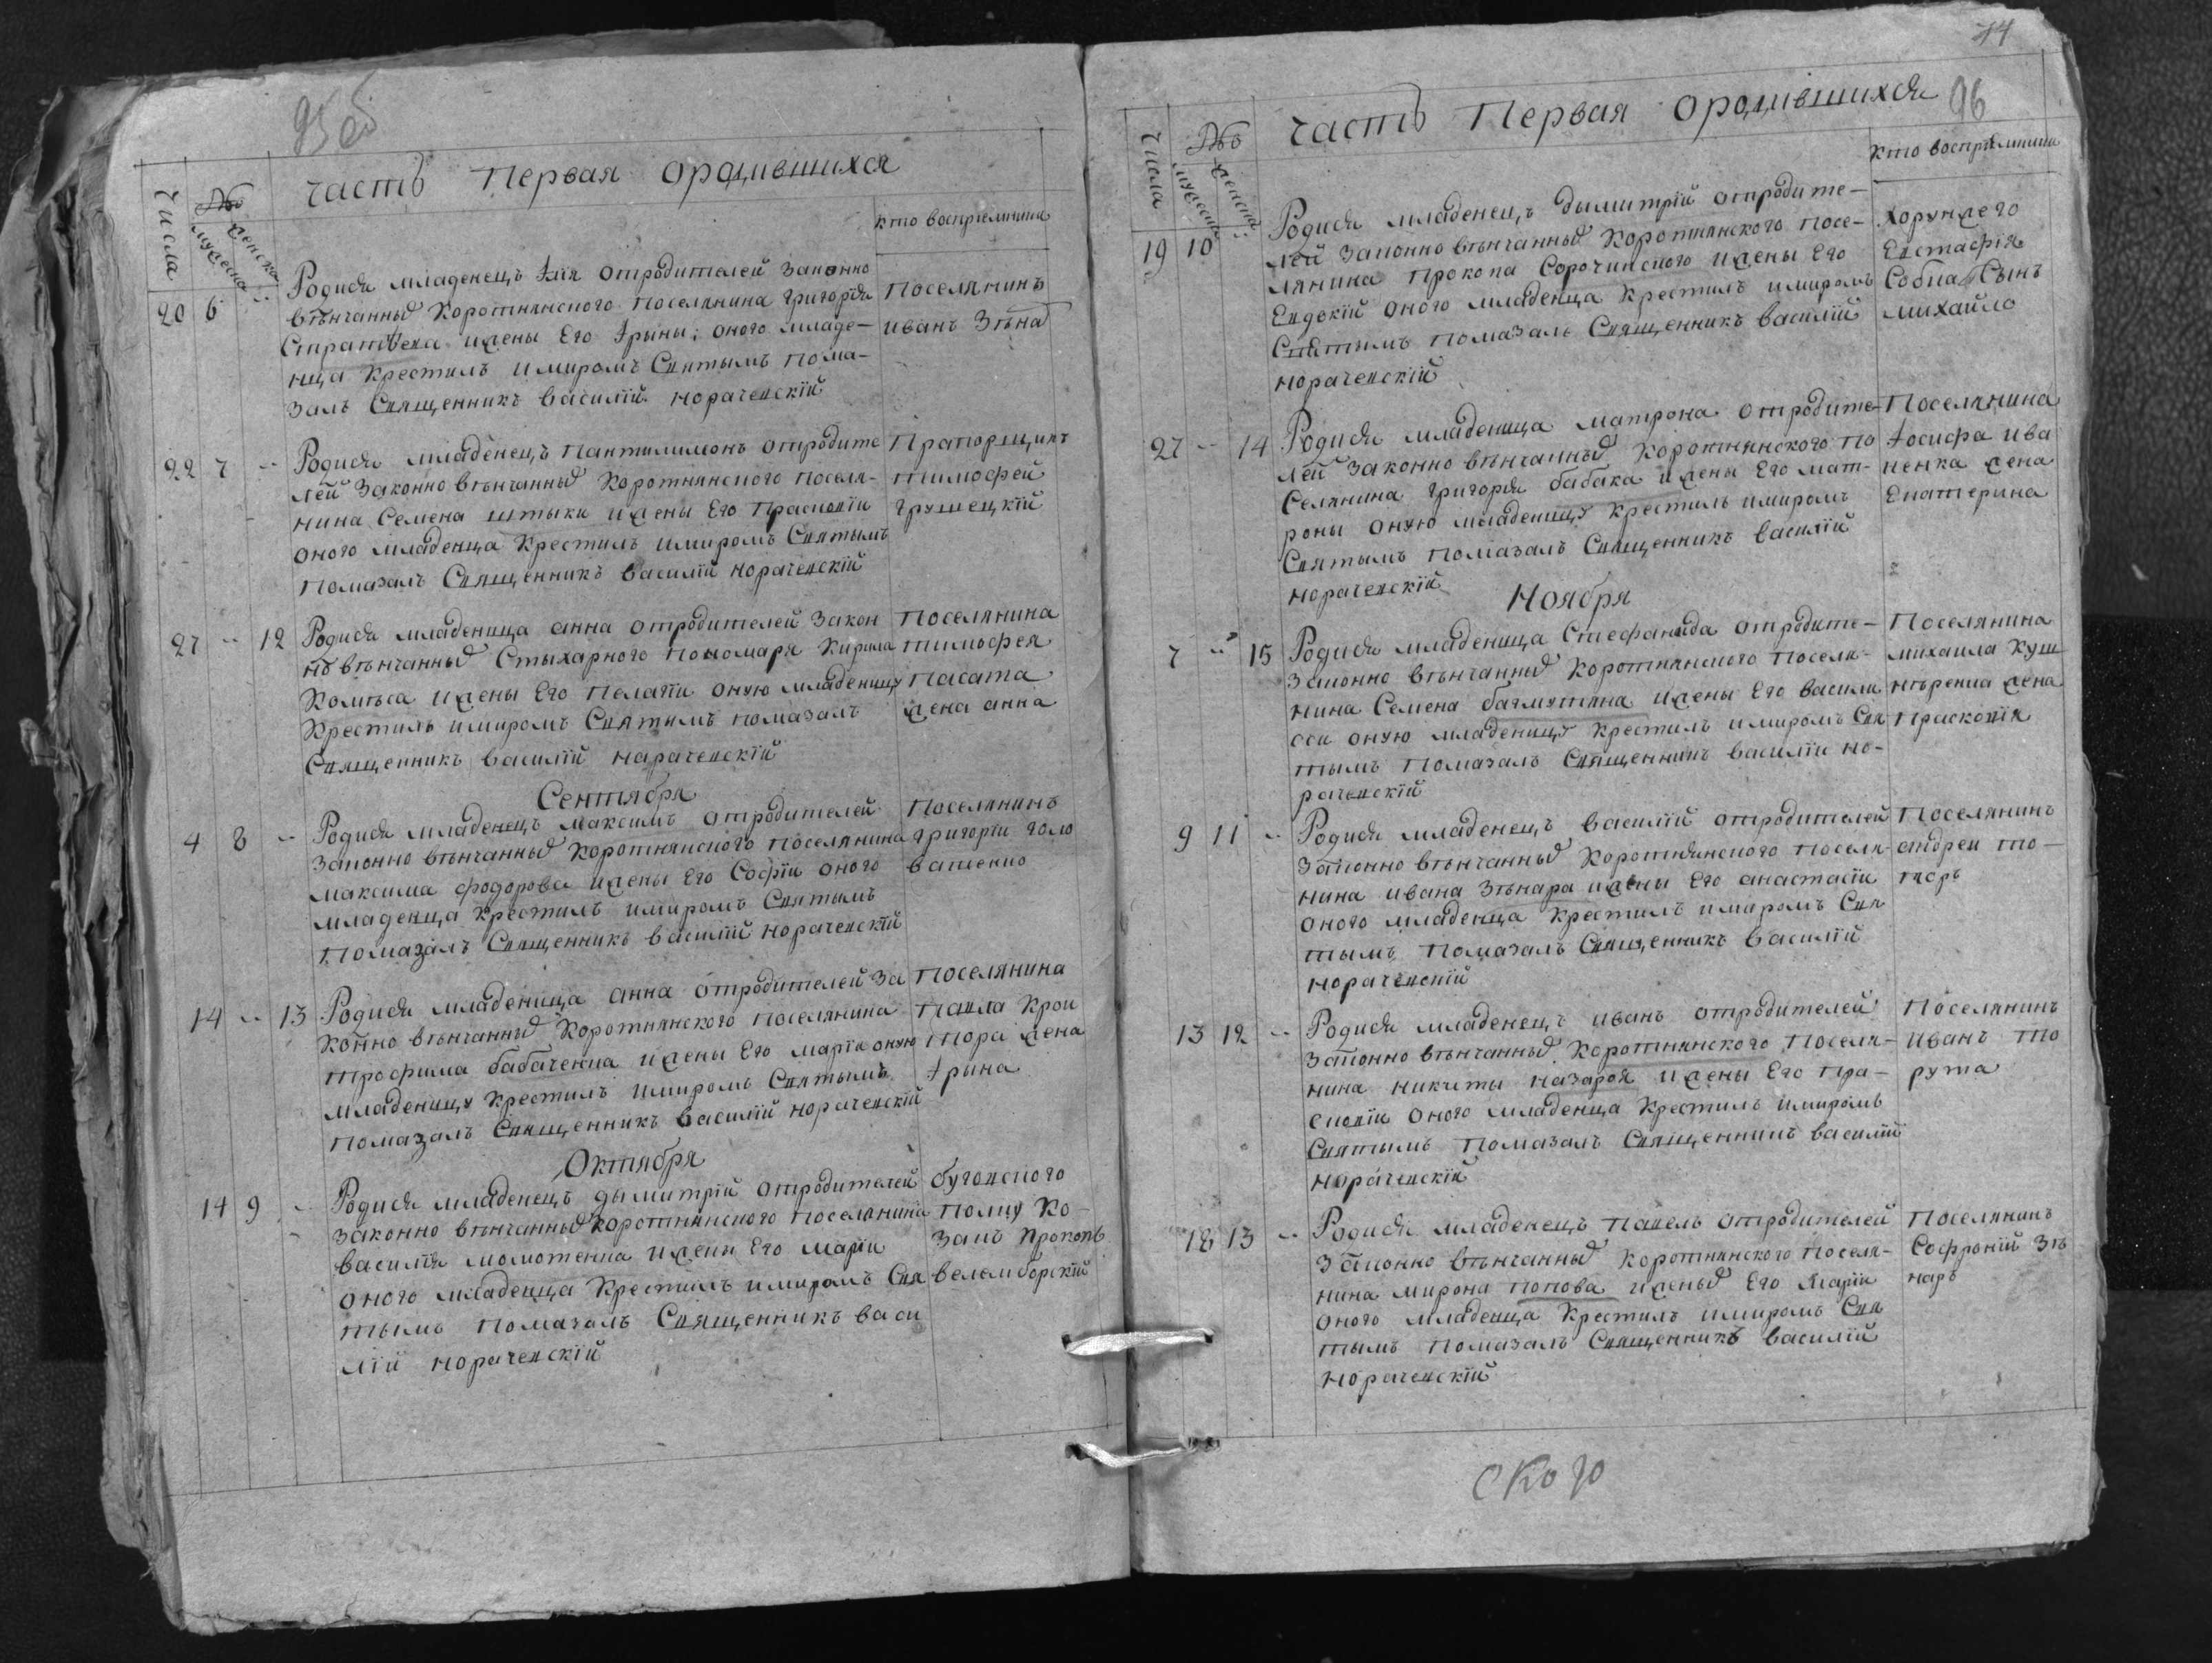 95 об
часть Первая ородившихся
Числа
№
мужеска
женска
Кто восприемники
20 6
Родися младенецъ Iлiя отродителей законно
вѣнчанных Коротнянского поселянина григорія
жены Его Iрины; оного младе-
нца Крестилъ имиромъ Святымъ пома-
залъ Священникъ василій норачевскій
поселянинъ
иванъ Зѣна
22 7
Родися младенецъ пантилимонъ отродите
лей законно вѣнчанных Коротнянского поселя-
нина Семена штыки ижены Его Прасковіи
оного младенца Крестилъ имиромъ Святымъ
помазалъ Священникъ василій норачевскій
Прапорщикъ
тимофей
грушецкій
27 12
Родися младеница анна отродителей закон
нѣ вѣнчанных Стыхарного пономаря Кирила
Комъса ижены Его пелагіи оную младеницу
Крестилъ имиромъ Святымъ помазалъ
Священникъ василій нарачевскій
поселянина
тимофея
пасата
жена анна
Сентября
4 8
Родися младенецъ максимъ отродителей
законно вѣнчанных Коротнянского поселянина
максима фодорова ижены Его Софіи оного
младенца Крестилъ имиромъ Святымъ
помазалъ Священникъ василій норачевскій
поселянинъ
григорій голо
ватенко
14 13
Родися младеница анна отродителей за
конно вѣнчанных Коротнянского поселянина
трофима бабаченка ижены Его маріи оную
младеницу Крестилъ имиромъ Святымъ
помазалъ Священникъ василій норачевскій
поселянина
павла Крои
тора жена
Iрина
Октября
14 9
Родися младенецъ дымитрій отродителей
законно вѣнчанных коротнянского поселянина
василія момотенка ижены Его маріи
оного младенца Крестилъ имиромъ Свя
тымъ помазалъ Священникъ васи
лій норачевскій
бугонского
полку Ко-
закъ Прокопъ
велемборскій
74
96
часть Первая ородившихся
Числа
№
мужеска
женска
Кто восприемники
19 10
Родися младенецъ дымитрій отродите-
лей законно вѣнчанных Коротнянского посе-
лянина Прокопа Сорочинского ижены Его
Евдокій оного младенца Крестилъ имиромъ
Святымъ помазалъ Священникъ василій
норачевскій
Хорунжего
Евстафія
Собка Сынъ
михайло
27 14
Родися младеница матрона отродите-
лей законно вѣнчанных Коротнянского по
селянина григорія бабака ижены Его мат-
роны оную младеницу Крестилъ имиромъ
Святымъ помазалъ Священникъ василій
норачевскій
Поселянина
Iосифа ива
ненка жена
Екатерина
Ноября
7 15
Родися младеница Стефанида отродите-
законно вѣнчанных Коротнянского поселя-
нина Семена багмятина ижены Его васили
оси оную младеницу Крестилъ имиромъ Свя
тымъ помазалъ Священникъ василій но-
рачевскій
поселянина
михаила Куш
нѣренка жена
Прасковія
9 11
Родися младенецъ василій отродителей
законно вѣнчанных Коротнянского поселя-
нина ивана Зѣнара ижены Его анастасіи
оного младенца Крестилъ имиромъ Свя
тымъ помазалъ Священникъ василій
норачевскій
Поселянинъ
андреи то-
поръ
13 12
Родися младенецъ иванъ отродителей
законно вѣнчанных Коротнянского поселя-
нина никиты назароя ижены Его пра-
сковіи оного младенца Крестилъ имиромъ
Святымъ помазалъ Священникъ василій
норачевскій
Поселянинъ
иванъ то
рута
18 13
Родися младенецъ павелъ отродителей
законно вѣнчанных Коротнянского поселя-
нина мирона попова иженых Его маріи
оного младенца Крестилъ имиромъ Свя
тымъ помазалъ Священникъ василій
норачевскій
поселянинъ
Софроній Зѣ
наръ
ского